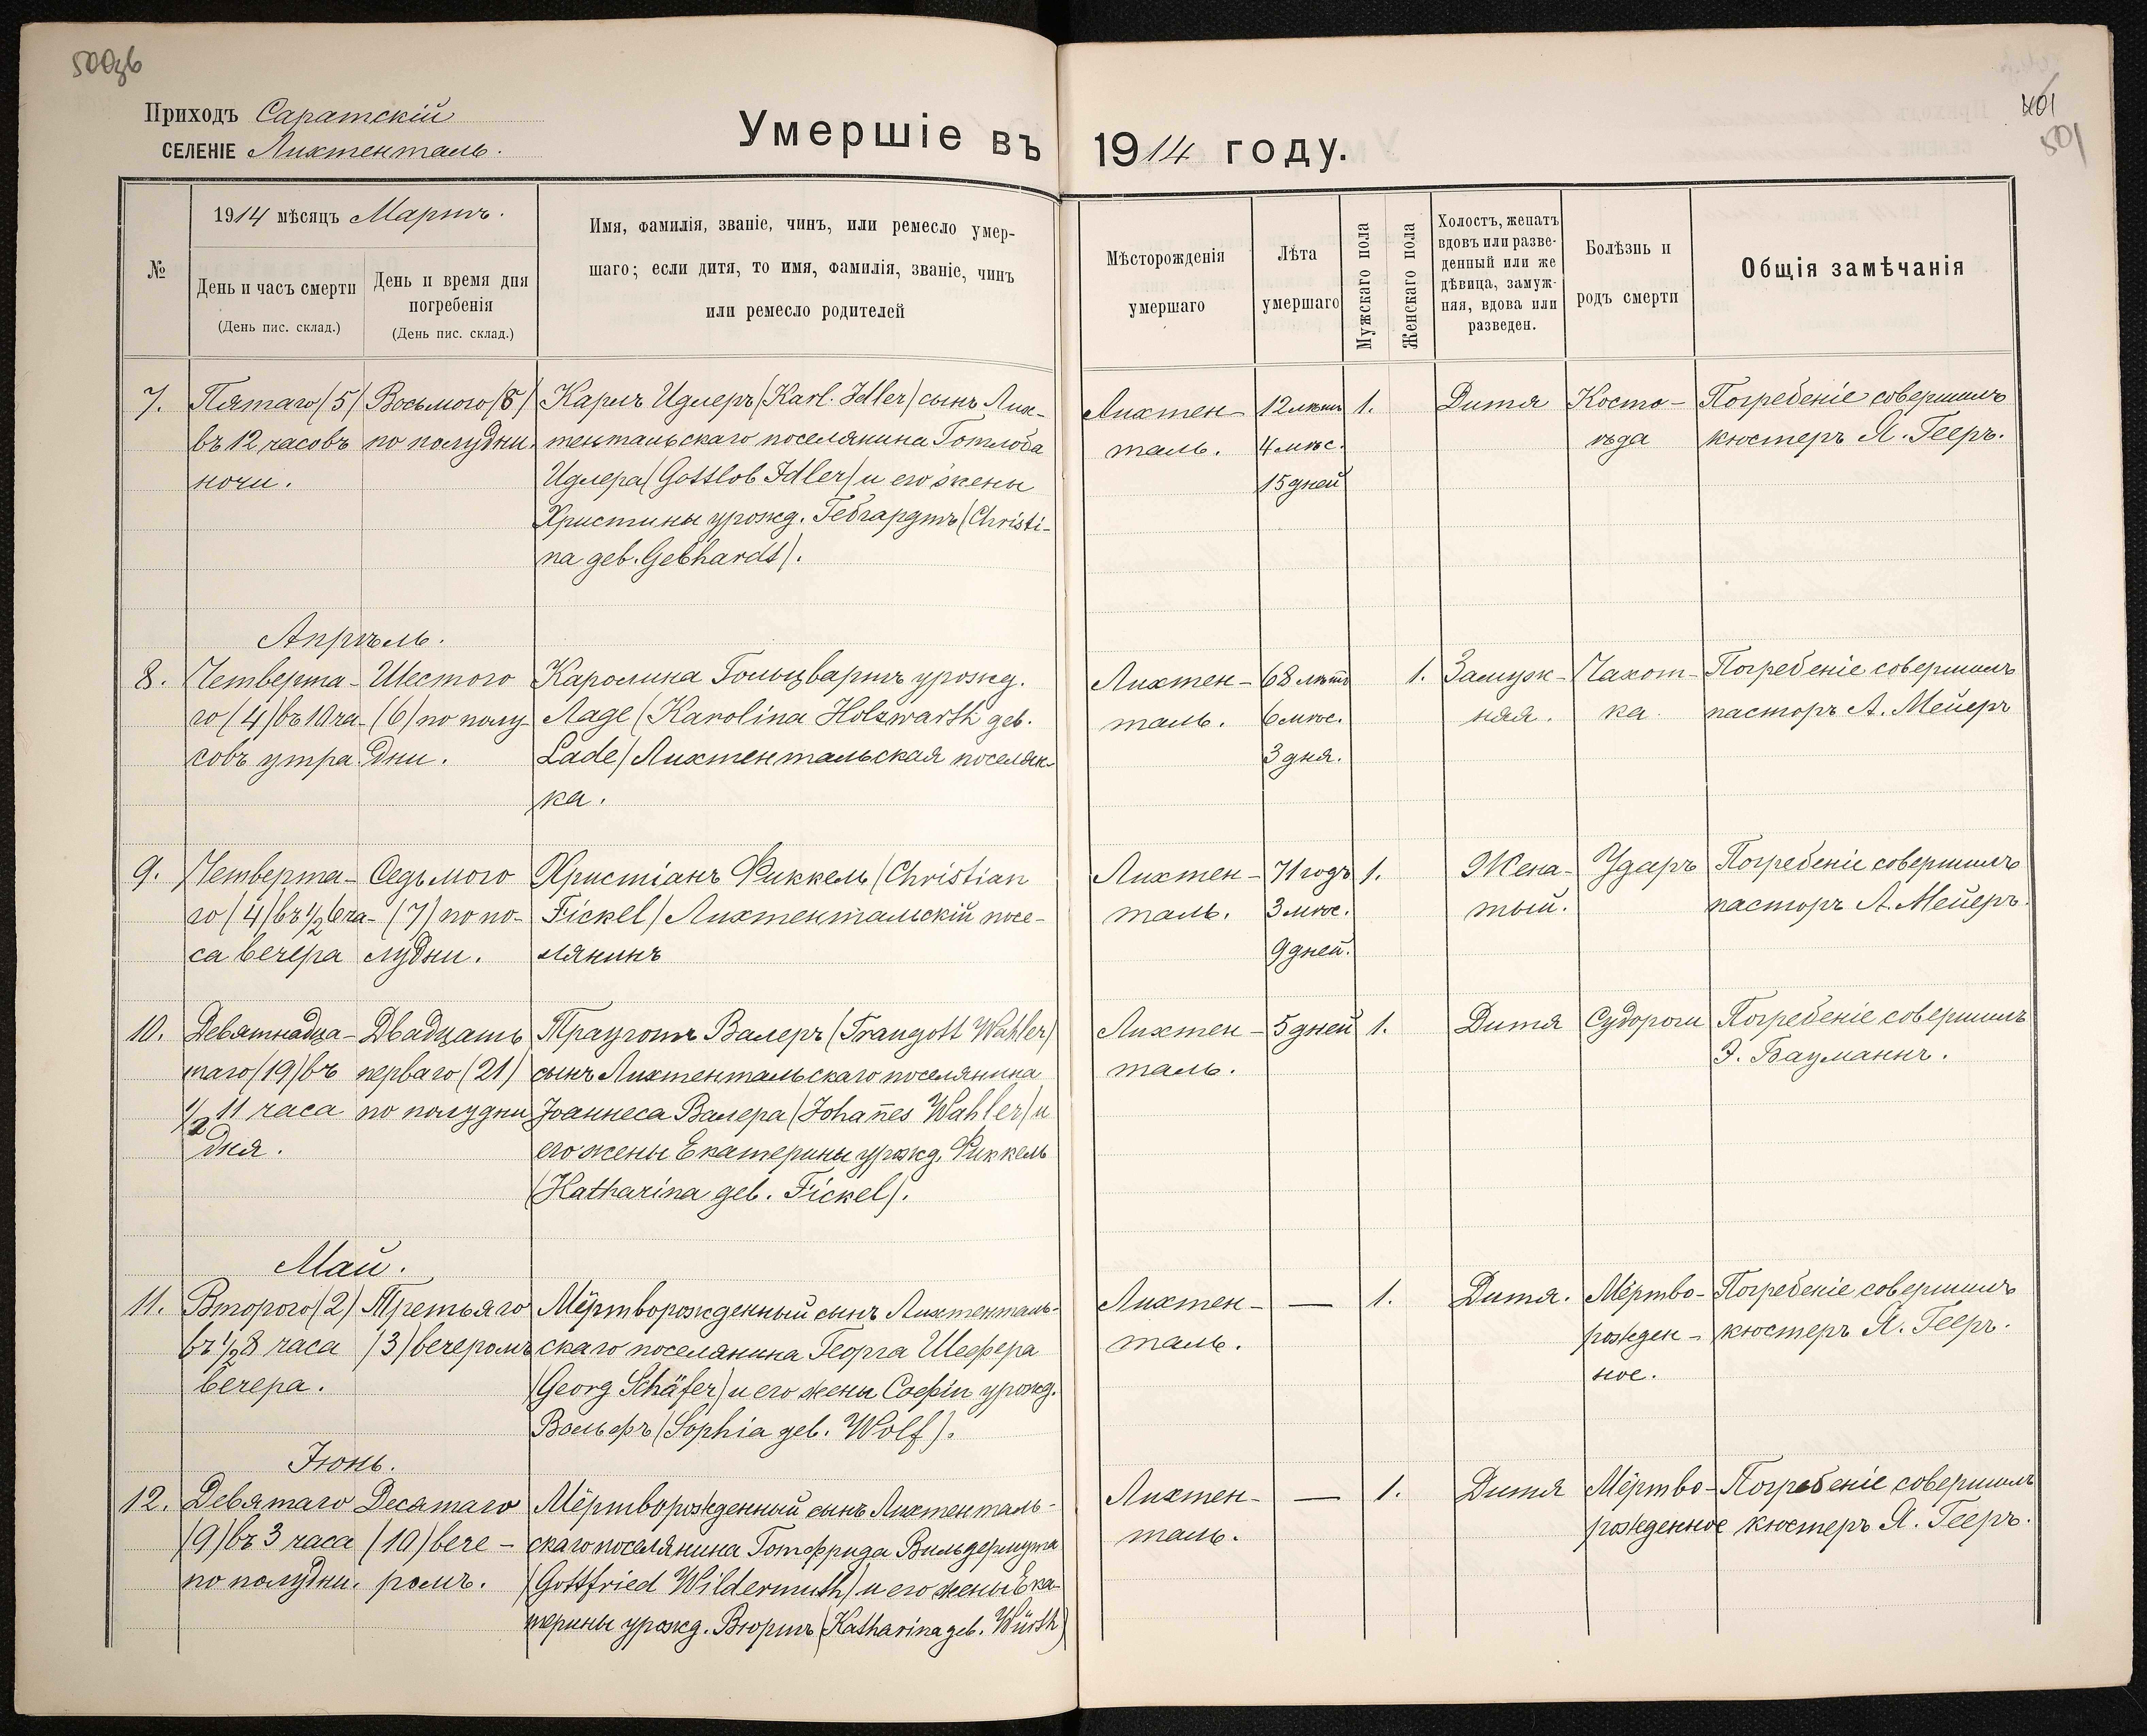 500об
Приходъ Саратскій
СЕЛЕНІЕ Лихтенталь.
Умершіе въ 1914 году.
401
501
№
1914 мѣсяцъ Мартъ.
День и часъ смерти
(День пис. склад.)
День и время дня
погребенія
(День пис. склад.)
Имя, фамилія, званіе, чинъ, или ремесло умер-
шаго; если дитя, то имя, фамилія, званіе, чинъ
или ремесло родителей
Мѣсторожденія
умершаго
Лѣта
умершаго
Мужскаго пола
Женскаго пола
Холостъ, женатъ
вдовъ или разве-
денный или же
дѣвица, замуж-
няя, вдова или
разведен.
Болѣзнь и
родъ смерти
Общія замѣчанія
7.
Пятаго (5)
въ 12 часовъ
ночи.
Восьмого (8)
по полудни.
Карлъ Идлеръ (Karl. Idler) сынъ Лих-
тентальскаго поселянина Готлоба
Идлера (Gottlob Idler) и его жены
Христины урожд. Гебгардтъ (Christi-
na geb. Gebhardt).
Лихтен-
таль.
12 лѣтъ
4 мѣс.
15 дней
1.
Дитя
Косто-
ѣда
Погребеніе совершилъ
кюстеръ Я. Гееръ.
Апрѣль.
8.
Четверта-
го (4) въ 10 ча-
совъ утра
Шестого
(6) по полу-
дни.
Каролина Гольцвартъ урожд.
Ладе (Karolina Holzwarth geb.
Lade) Лихтентальская поселян-
ка.
Лихтен-
таль.
68 лѣтъ
6 мѣс.
3 дня.
1.
Замуж-
няя.
Чахот-
ка.
Погребеніе совершилъ
пасторъ А. Мейеръ
9.
Четверта-
го (4) въ 1/2 6 ча-
са вечера
Седьмого
(7) по по-
лудни.
Христіанъ Фиккель (Christian
Fickel) Лихтентальскій посе-
лянинъ
Лихтен-
таль.
71 годъ
3 мѣс.
9 дней.
1.
Жена-
тый.
Ударъ
Погребеніе совершилъ
пасторъ А. Мейеръ.
10.
Девятнадца-
таго (19) въ
1/2 11 часа
дня.
Двадцать
перваго (21)
по полудни
Трауготъ Валеръ (Traugott Wahler)
сынъ Лихтентальскаго поселянина
Іоаннеса Валера (Johan̄es Wahler) и
его жены Екатерины урожд. Фиккель
(Katharina geb. Fickel).
Лихтен-
таль.
5 дней
1.
Дитя
Судороги
Погребеніе совершилъ
Э. Бауманнъ.
Май.
11.
Второго (2)
въ 1/2 8 часа
вечера.
Третьяго
(3) вечеромъ
Мёртворожденный сынъ Лихтенталь-
скаго поселянина Георга Шефера
(Georg Schäfer) и его жены Софіи урожд.
Вольфъ (Sophia geb. Wolf).
Лихтен-
таль.
—
1.
Дитя.
Мёртво-
рожден-
ное.
Погребеніе совершилъ
кюстеръ Я. Гееръ.
Іюнь.
12.
Девятаго
(9) въ 3 часа
по полудни.
Десятаго
(10) вече-
ромъ.
Мёртворожденный сынъ Лихтенталь-
скаго поселянина Готфрида Вильдермута
(Gottfried Wildermuth) и его жены Ека-
терины урожд. Вюртъ (Katharina geb. Würth)
Лихтен-
таль.
—
1.
Дитя
Мёртво-
рожденное
Погребеніе совершилъ
кюстеръ Я. Гееръ.